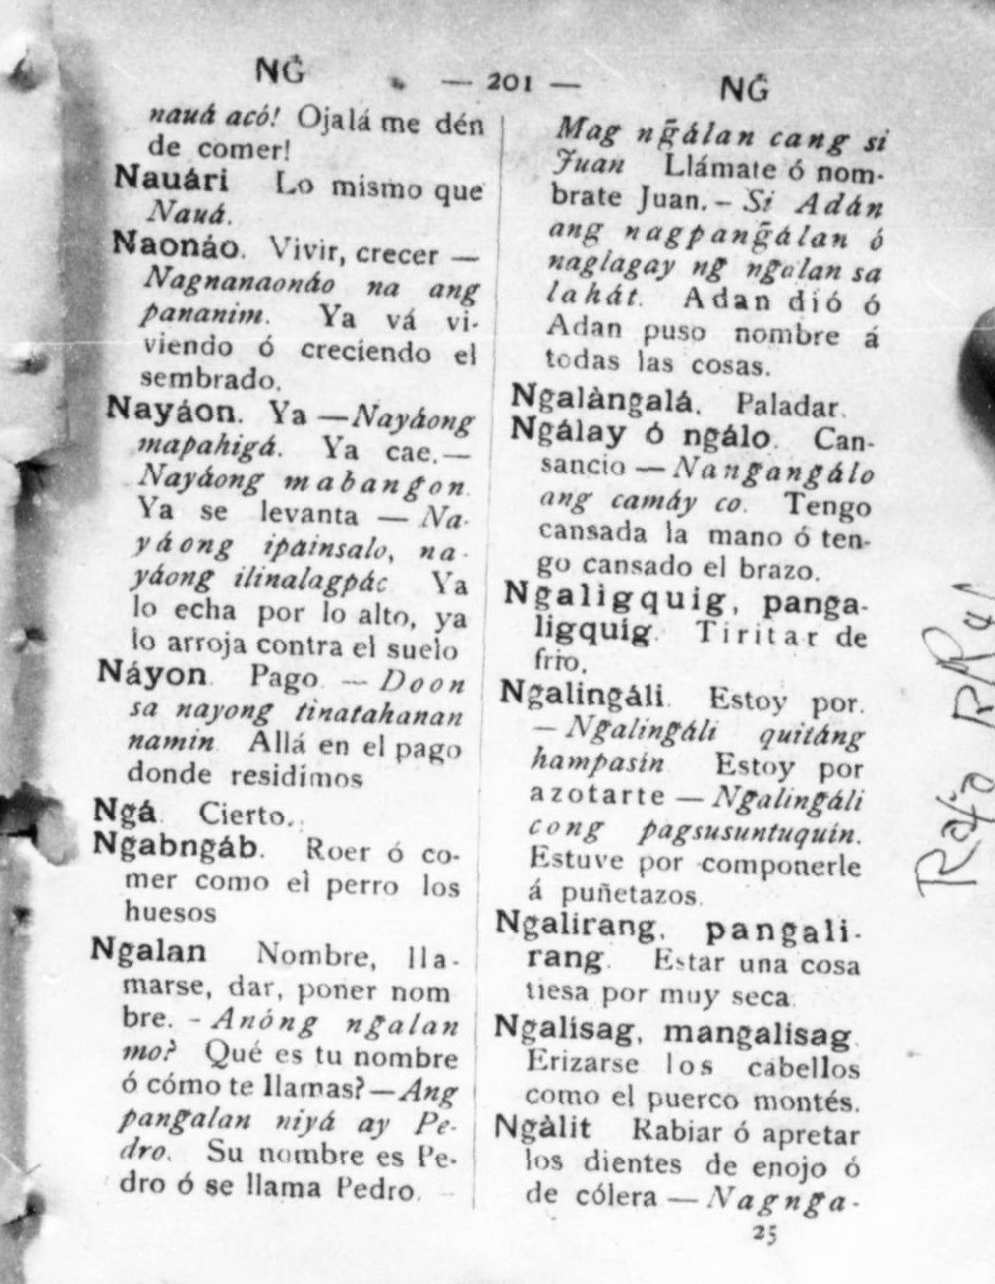 NG̃
— 201 —
NG̃
nauá acó! Ojalá me dén
de comer!
Nauári Lo mismo que
Nauá.
Naonáo. Vivir, crecer —
Nagnanaonáo na ang
pananim. Ya vá vi-
viendo ó creciendo el
sembrado.
Nayáon. Ya — Nayáong
mapahigá. Ya cae.—
Nayáong mabangon.
Ya se levanta — Na-
yáong ipainsalo, na-
yáong ilinalagpác Ya
lo echa por lo alto, ya
lo arroja contra el suelo
Náyon. Pago. — Doon
sa nayong tinatahanan
namin Allá en el pago
donde residimos
Ngá. Cierto.
Ngabngáb. Roer ó co-
mer como el perro los
huesos
Ngalan Nombre, lla-
marse, dar, poner nom
bre. - Anóng ngalan
mo? Qué es tu nombre
ó cómo te llamas?—Ang
pangalan niyá ay Pe-
dro. Su nombre es Pe-
dro ó se llama Pedro.
Mag ng̃álan cang si
Juan Llámate ó nom-
brate Juan. – Si Adán
ang nagpang̃álan ó
naglagay ng ngalan sa
lahát. Adan dió ó
Adan puso nombre á
todas las cosas.
Ngalàngalá. Paladar.
Ngálay ó ngálo. Can-
sancio — Nangangálo
ang camáy co. Tengo
cansada la mano ó ten-
go cansado el brazo.
Ngaligquig, panga-
ligquig. Tiritar de
frio.
Ngalingáli. Estoy por.
— Ngalingáli quitáng
hampasin Estoy por
azotarte — Ngalingáli
cong pagsusuntuquin.
Estuve por componerle
á puñetazos.
Ngalirang, pangali-
rang. Estar una cosa
tiesa por muy seca.
Ngalisag, mangalisag.
Erizarse los cabellos
como el puerco montés.
Ngàlit Rabiar ó apretar
los dientes de enojo ó
de cólera — Nagnga-
25